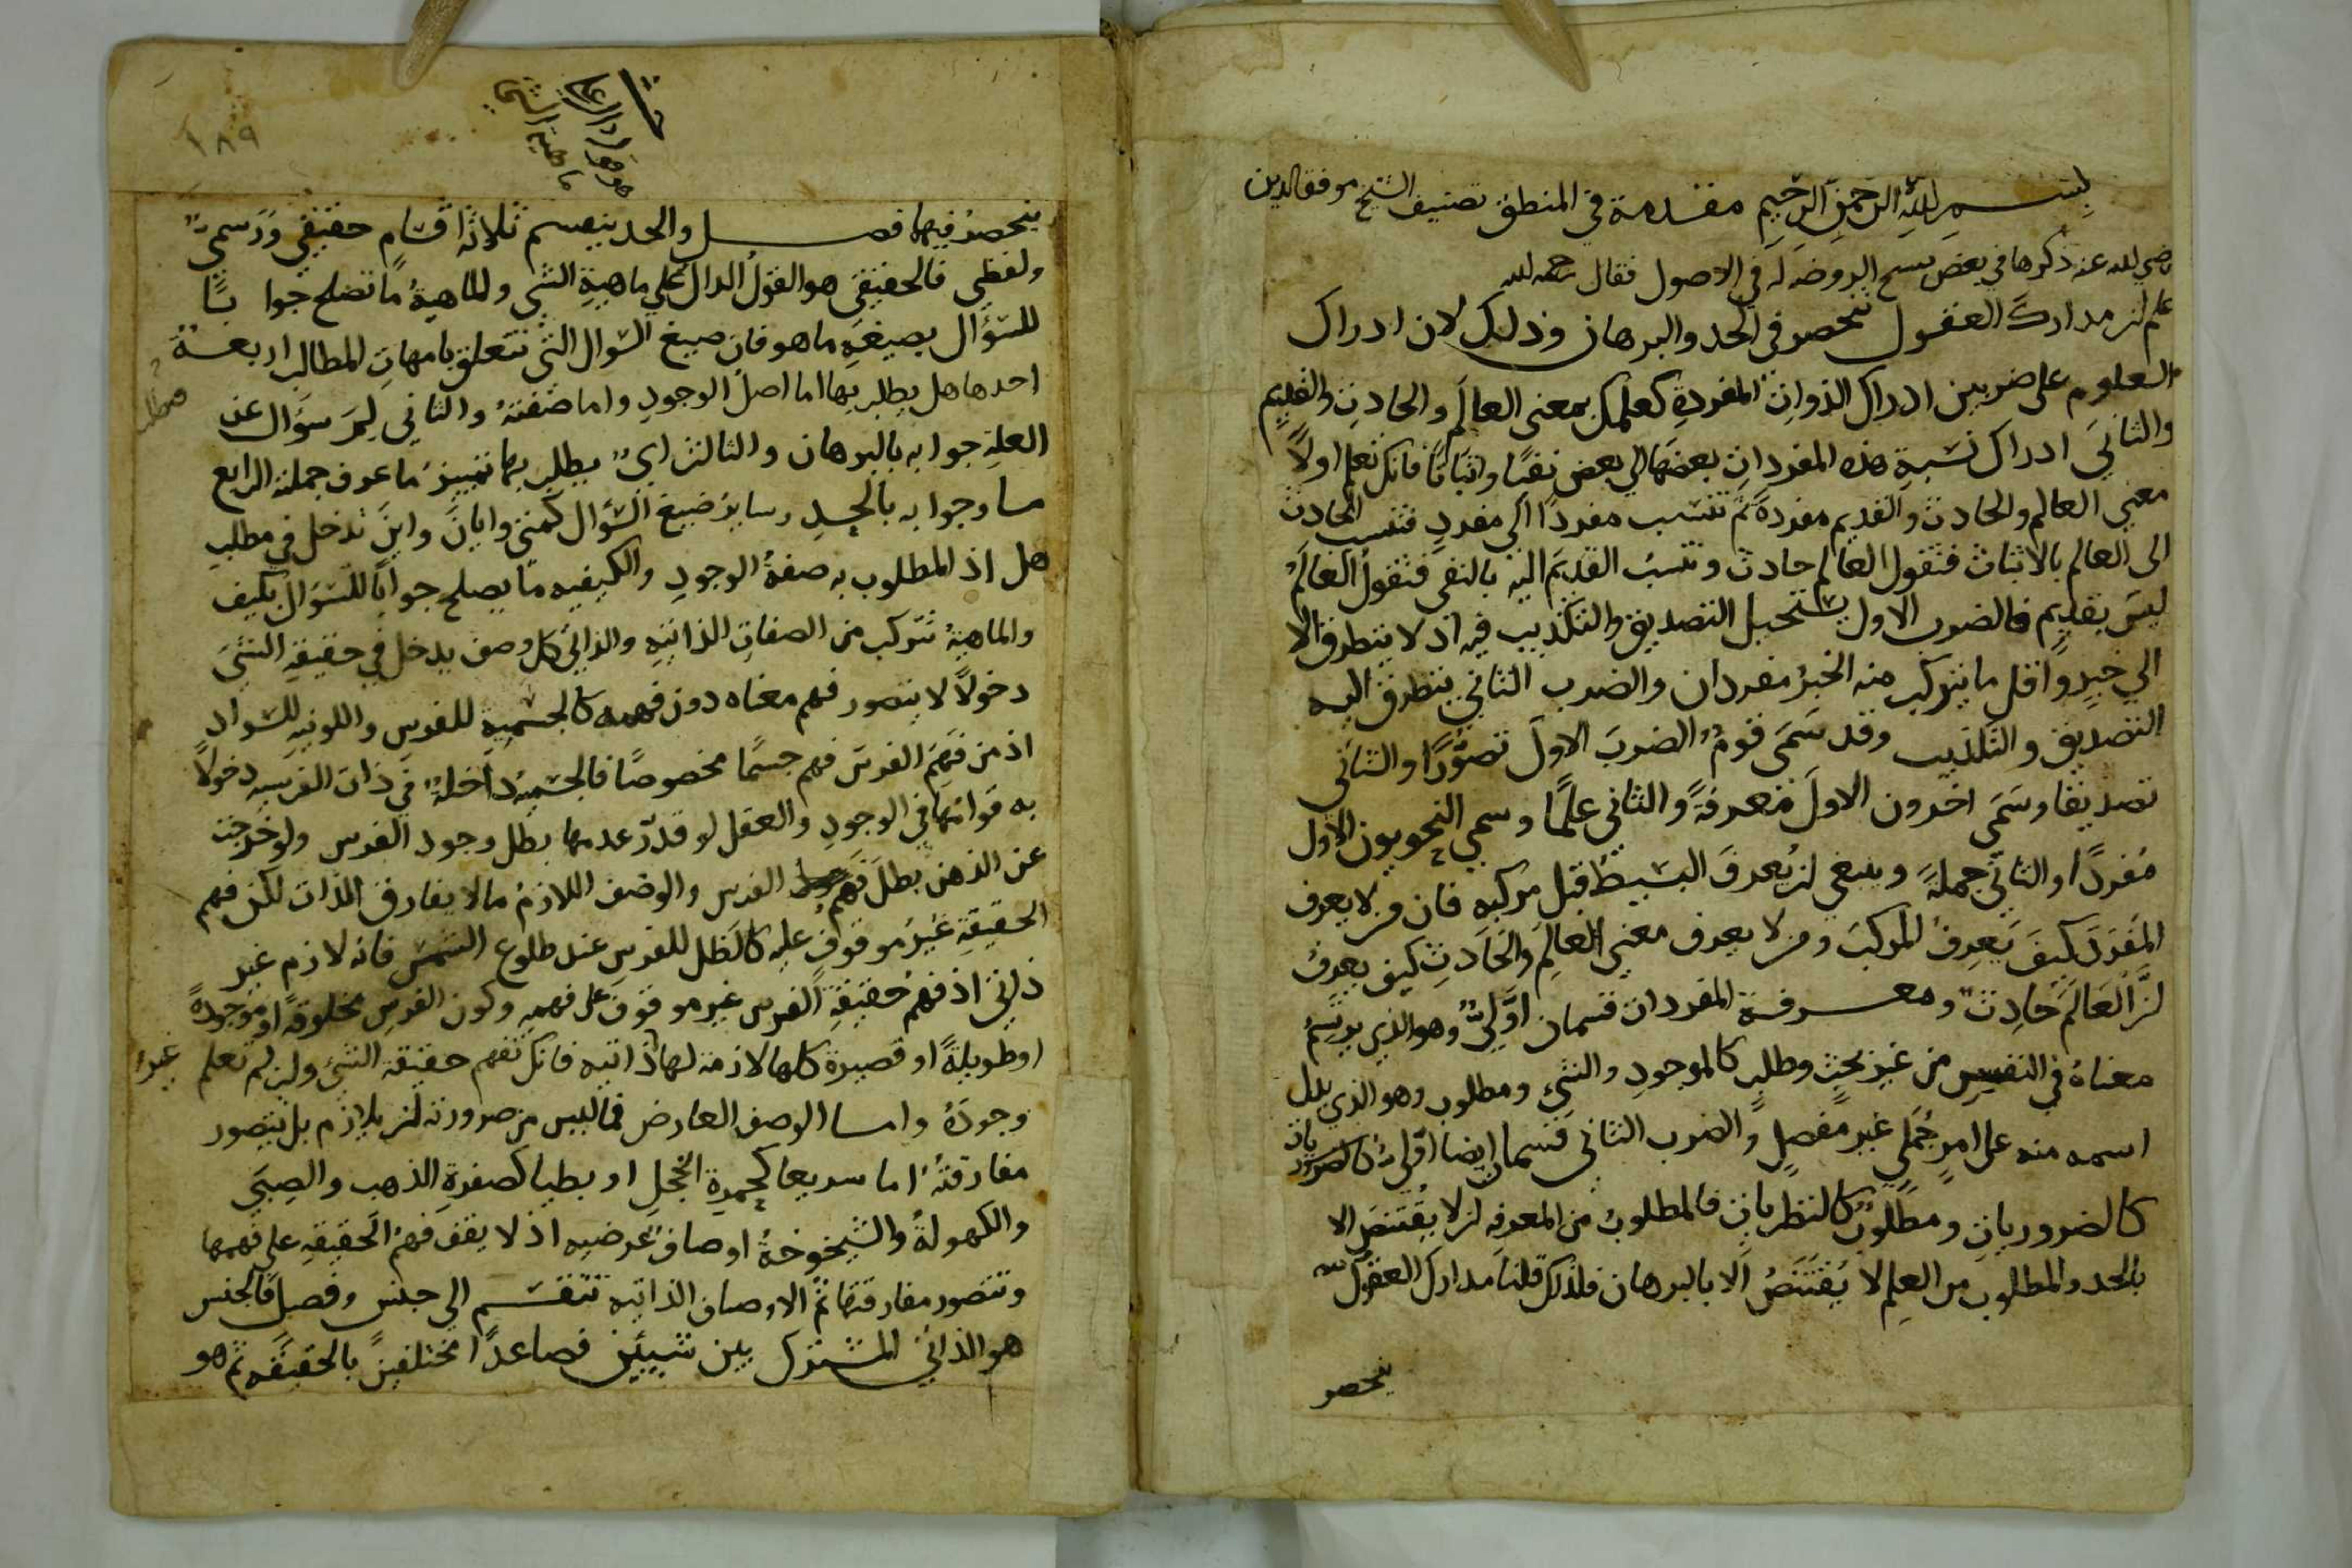 بسم الله الرحمن الرحيم مقدمة في المنطق تصنيف الشيخ موفق الدين
رضي الله عنه ذكرها في بعض نسخ الروضه له في الاصول فقال رحمه الله
اعلم ان مدارك العقول تنحصر في الحد والبرهان وذلك لان ادراك
العلوم على ضربين ادراك الذوات المفردة كعلمك بمعنى العالم والحادث والقديم
والثاني ادراك نسبة هذه المفردات بعضها الى بعض نفيا واثباتا فانك تعلم اولا
معنى العالم والحادث والقديم مفردة ثم تنسب مفردا الى مفرد فتنسب الحادث
الى العالم بالاثبات فتقول العالم حادث وتنسب القديم اليه بالنفي فتقول العالم
ليس بقديم فالضرب الاول يستحيل التصديق والتكذيب فيه اذ لا يتطرق الا
الى خبر واقل ما يتركب منه الخبر مفردان والضرب الثاني يتطرق اليه
التصديق والتكذيب وقد سمى قوم الضرب الاول تصورا والثاني
تصديقا وسمى اخرون الاول معرفة والثاني علما وسمى النحويون الاول
مفردا والثاني جملة وينبغي ان يعرف البسيط قبل مركبه فان من لا يعرف
المفرد كيف يعرف المركب ومن لا يعرف معنى العالم والحادث كيف يعرف
ان العالم حادث ومعرفة المفردات قسمان اولي وهو الذي يرتسم
معناه في النفس من غير بحث وطلب كالموجود والشيء ومطلوب وهو الذي يدل
اسمه منه على امر جملي غير مفصل والضرب الثاني قسمان ايضا اولي
كالضروريات ومطلوب كالنظريات فالمطلوب من المعرفه لا يقتنص الا
بالحد والمطلوب من العلم لا يقتنص الا بالبرهان فلذلك قلنا مدارك العقول
ينحصر
١٨٩
ينحصر فيهما فصل والحد ينقسم ثلاثة اقسام حقيقي ورسمي
ولفظي فالحقيقي هو القول الدال على ماهية الشي والماهية ما تصلح جوابا
للسؤال بصيغة ما هو فان صيغ السوال التي تتعلق بامهات المطالب اربعة
احدها هل يطلب بها اما اصل الوجود واما صفته والثاني لم سؤال عن
العلة جوابه بالبرهان والثالث اي يطلب بها تمييز ما عرف جملته الرابع
ما وجوابه بالحد وساير صيغ السؤال كمتى وايان واين تدخل في مطلب
هل اذ المطلوب به صفة الوجود والكيفيه ما يصلح جوابا للسؤال بكيف
والماهية تتركب من الصفات الذاتيه والذاتي كل وصف يدخل في حقيقة الشي
دخولا لا يتصور فهم معناه دون فهمه كالجسمية للفرس واللونيه للسواد
اذ من فهم الفرس فهم جسما مخصوصا فالجسمية داخلة في ذات الفرسيه دخولا
به قوامها في الوجود والعقل لو قدر عدمها بطل وجود الفرس ولو خرجت
عن الذهن بطل فهم الفرس والوصف اللازم ما لا يفارق الذات لكن فهم
الحقيقة غير موقوف عليه كالظل للفرس عند طلوع الشمس فانه لازم غير
ذاتي اذ فهم حقيقة الفرس غير موقوف على فهمه وكون الفرس مخلوقة او موجودة
او طويلة او قصيرة كلها لازمة لها غير ذاتيه فانك تفهم حقيقة الشيء وان لم تعلم
وجوده واما الوصف العارض فما ليس من ضرورته ان يلازم بل يتصور
مفارقته اما سريعا كحمرة الخجل او بطيا كصفرة الذهب والصبى
والكهولة والشيخوخة اوصاف عرضيه اذ لا يقف فهم الحقيقة على فهمها
وتتصور مفارقتها ثم الاوصاف الذاتيه تنقسم الى جنس وفصل فالجنس
هو الذاتي المشترك بين شيئين فصاعدا مختلفين بالحقيقه ثم هو